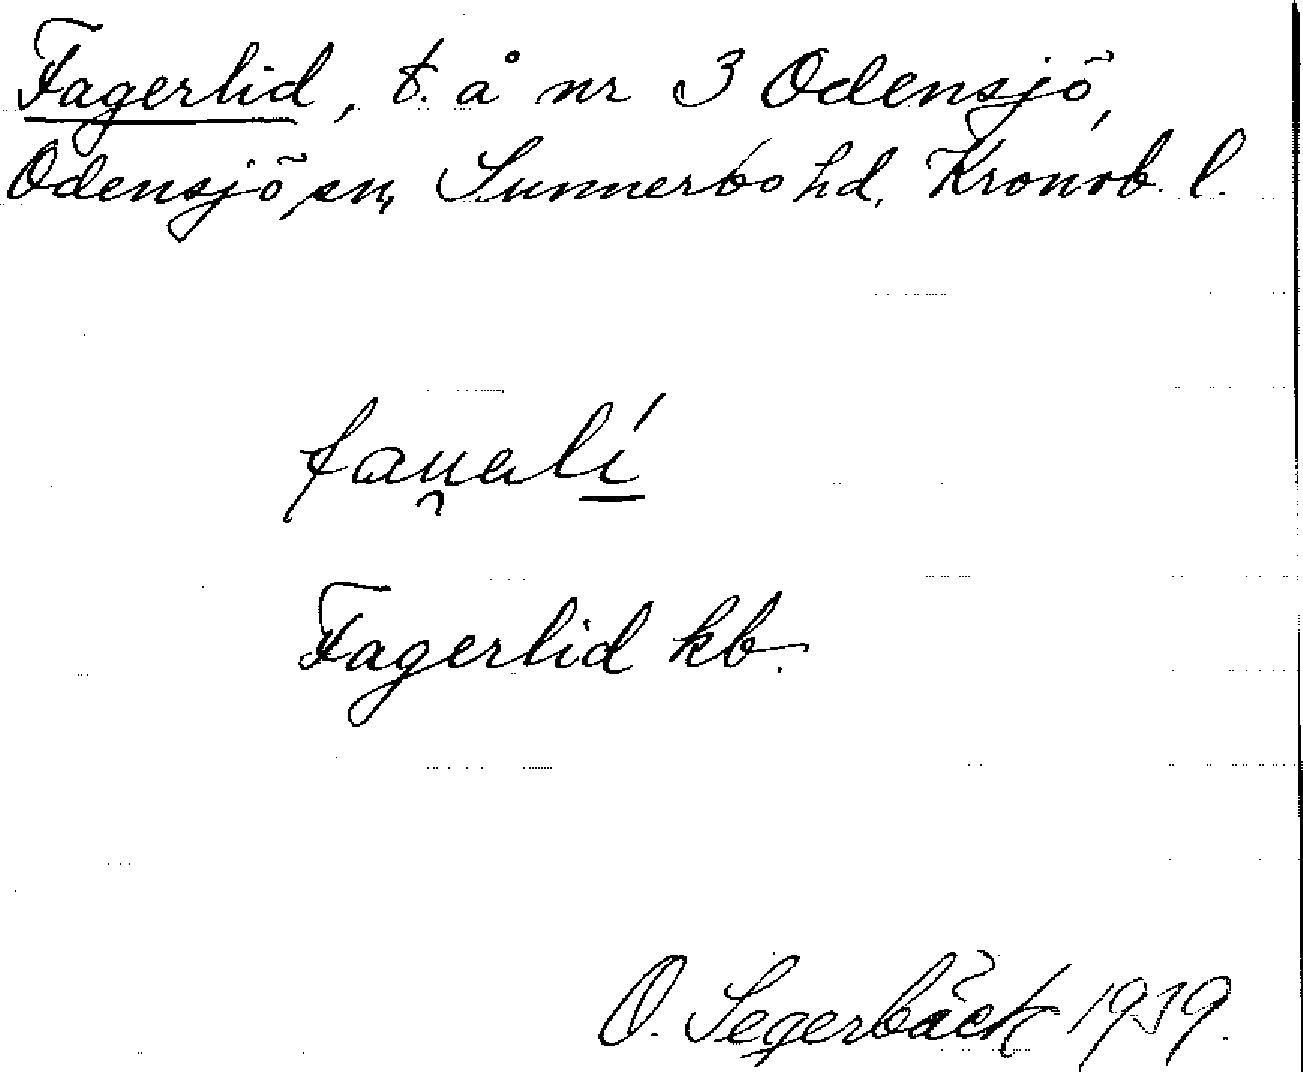 Fagerlid, t. å nr 3 Odensjö,
Odensjö sn, Sunnerbo hd, Kronob. l.
fau̯alí
Fagerlid kb.
O. Segerbäck 1919.